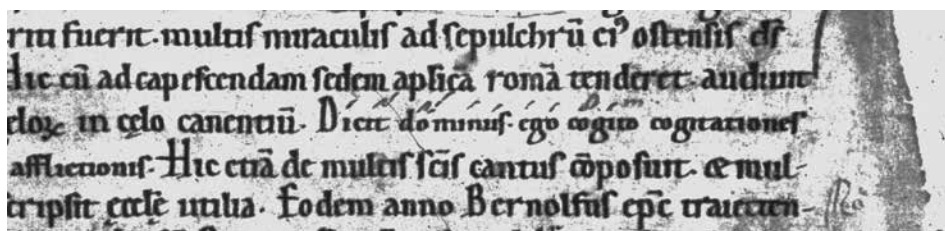 fuerit. multis miraculis ad sepulchrū ei⁹ ostensis
Hic cū ad capescendam sedem aplicā romā tenderet. audiunt
in celo canentiū. Dicit dominus. ego cogito cogitationes
afflictionis. Hic etiā de multis scīs cantus cōposuit. & mul-
cripsit eccłe utilia. Eodem anno Bernolfus epc traiecten-